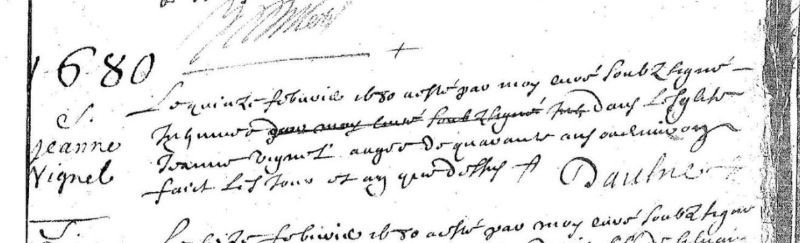 1680
S.
Jeanne
Vignel
Le quinze febvrie 1680 a esté par moy curé soubzsigné
inhumée par moy curé soubzsigné dans l'esglise
Jeanne Vignel aagée de quarante ans ou environ
faict les jour et an que dessus
Daulne
S.
Le seize febvrie 1680 a esté par moy curé soubzsigné